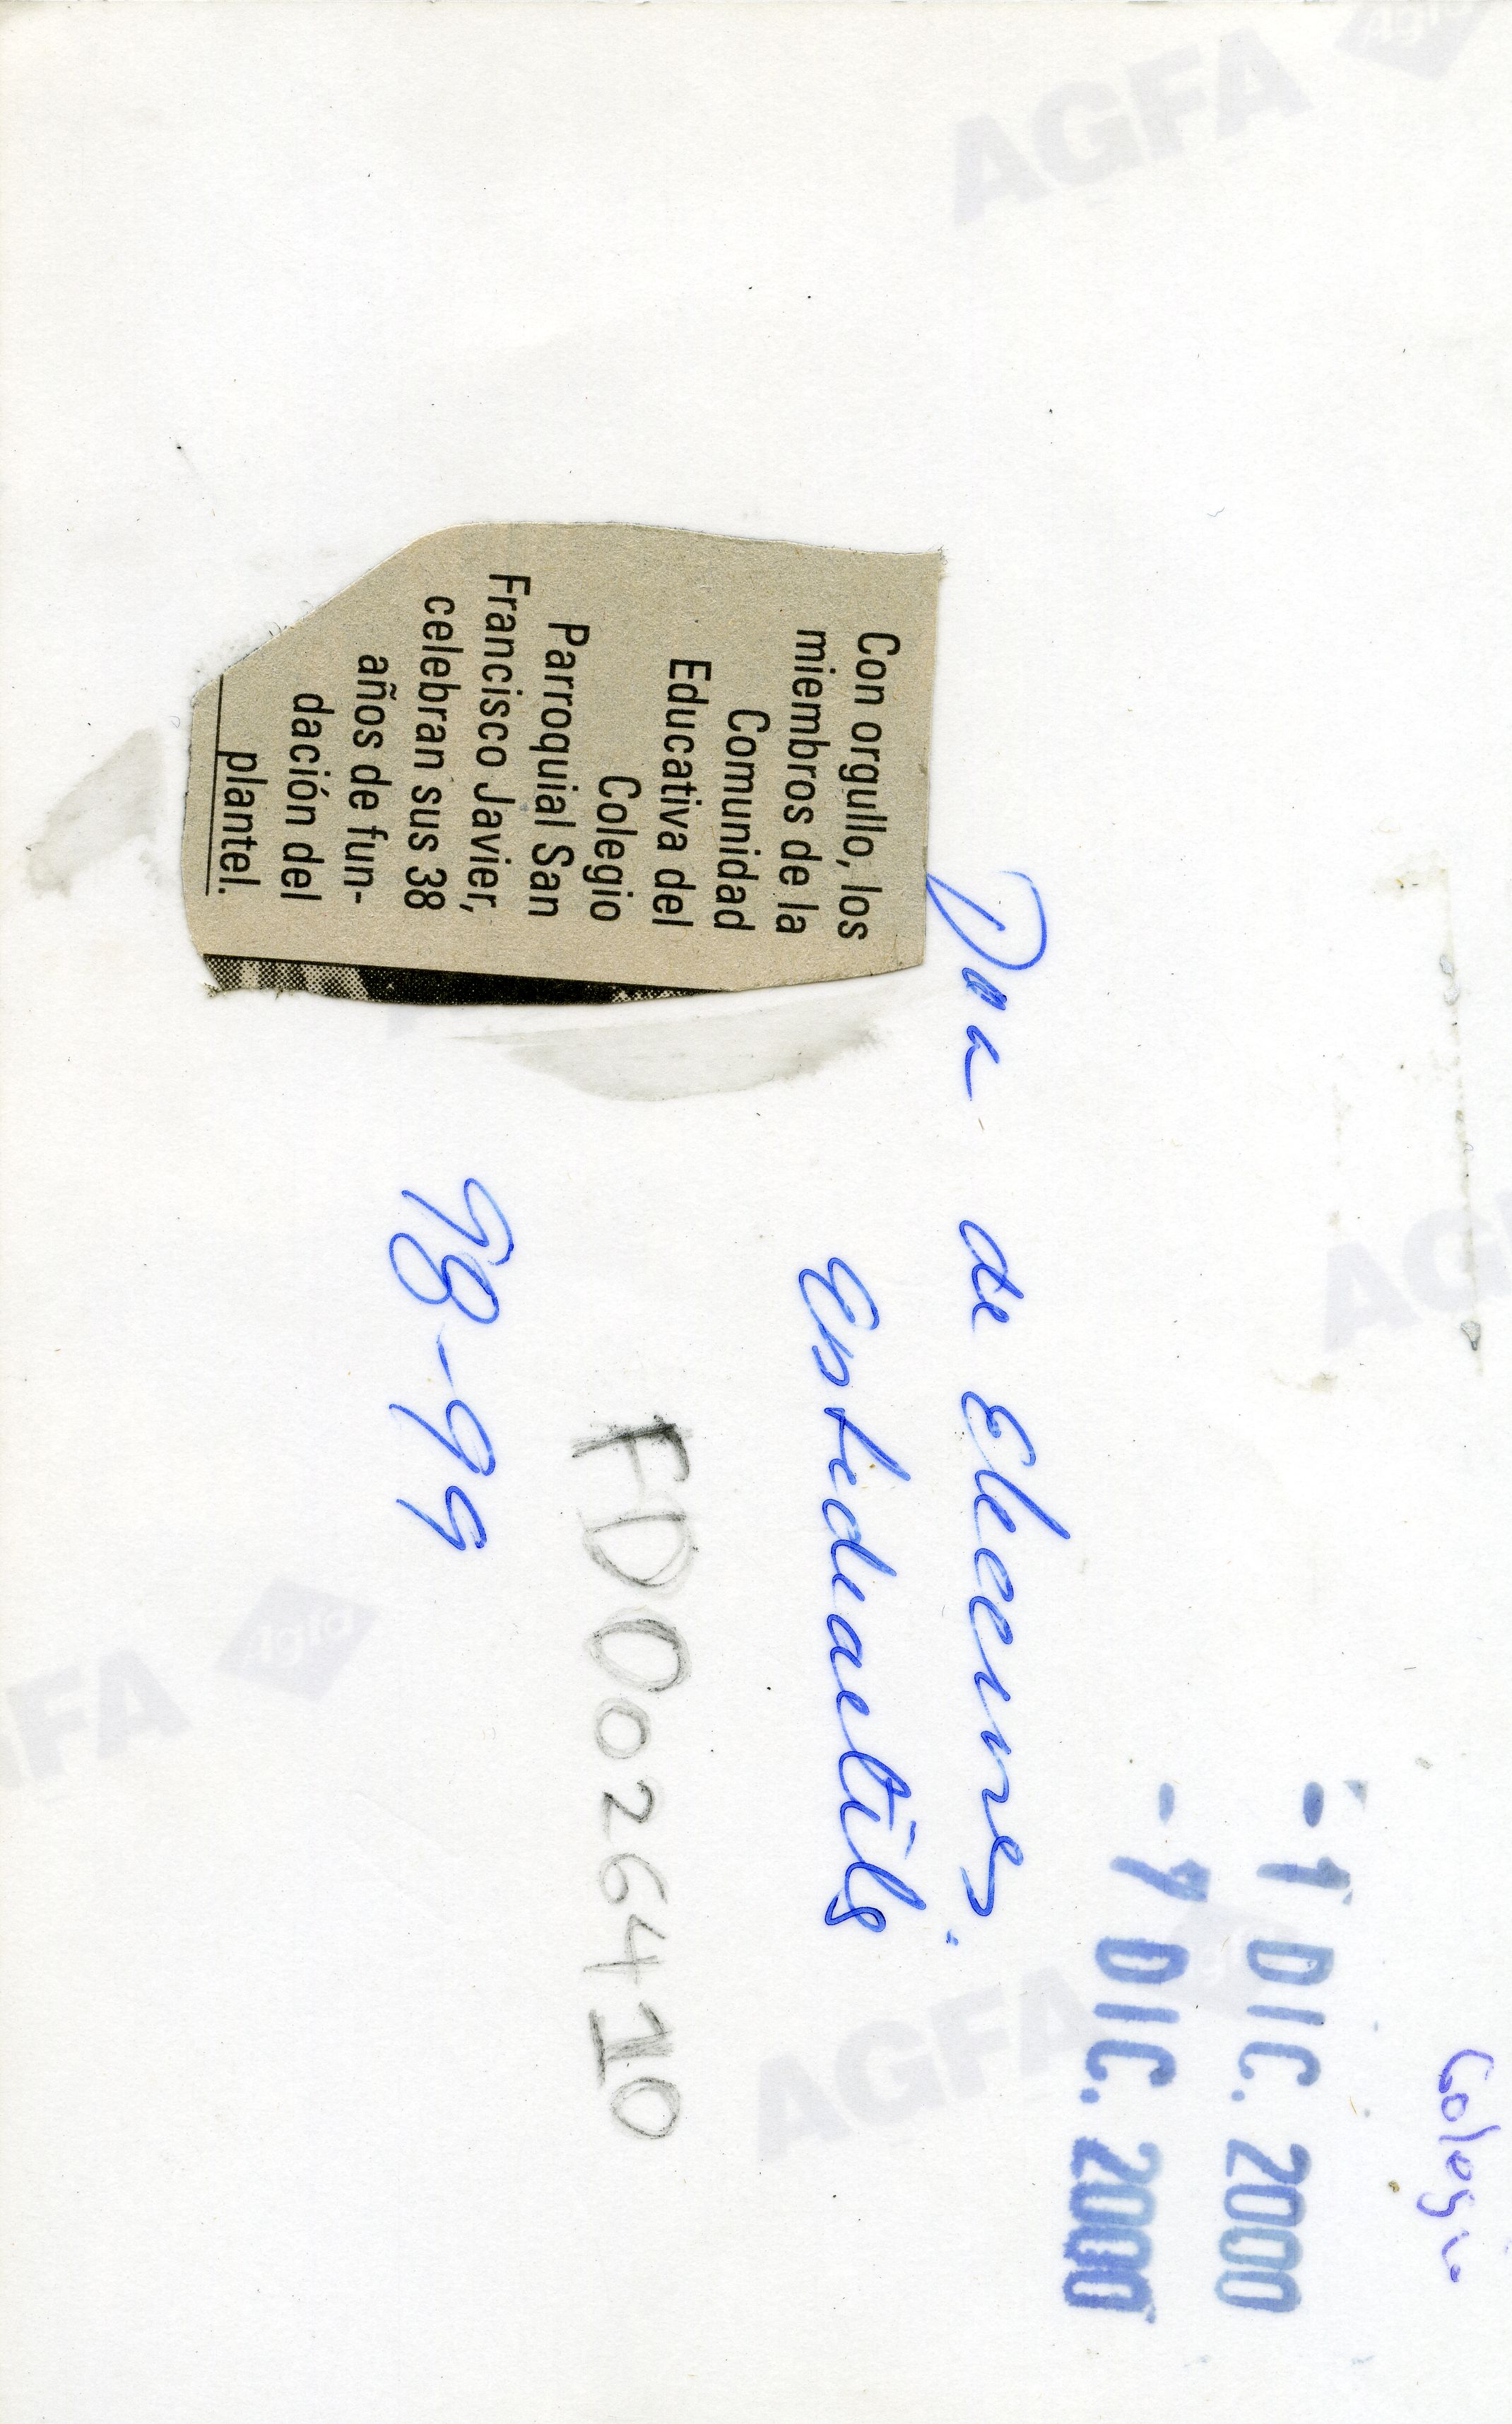 Colegio
- 1 DIC. 2000
- 7 DIC. 2000
Con orgullo, los
miembros de la
Comunidad
Educativa del
Colegio
Parroquial San
Francisco Javier,
celebran sus 38
años de fun-
dación del
plantel.
Dia de Elecciones
Estudiantiles
FD0026410
98-99
AGFA
AGFA